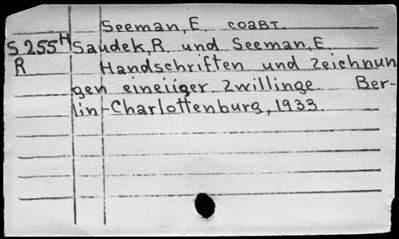 Seeman, E. соавт.
S 255 H Saudek, R. und Seeman, E.
R Handschriften und Zeichnun
gen eineiiger Zwillinge. Ber-
lin-Charlottenburg, 1933.